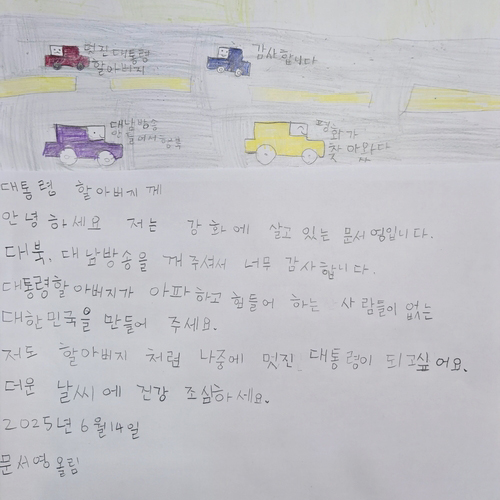 멋진 대통령
할아버지
감사합니다
대남방송
안 들어서 행복
평화가
찾아와다
대통령 할아버지께
안녕하세요 저는 강화에 살고 있는 문서영입니다.
대북, 대남방송을 꺼주셔서 너무 감사합니다.
대통령할아버지가 아파하고 힘들어 하는 사람들이 없는
대한민국을 만들어 주세요.
저도 할아버지 처럼 나중에 멋진 대통령이 되고싶어요.
더운 날씨에 건강 조심하세요.
2025년 6월 14일
문서영올림